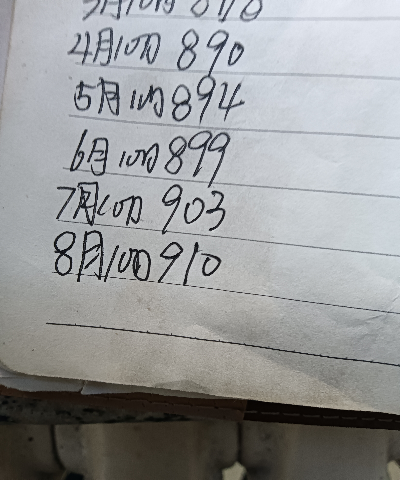 4月10日 890
5月10日 894
6月10日 899
7月10日 903
8月10日 910